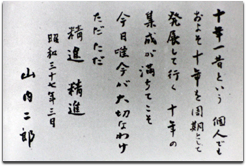 十年一昔という 個人でも
およそ十年を周期として
発展して行く 十年の
集成が満ちてこそ
今日唯今が大切なわけ
ただただ
精進 精進
昭和三十七年三月
山内二郎